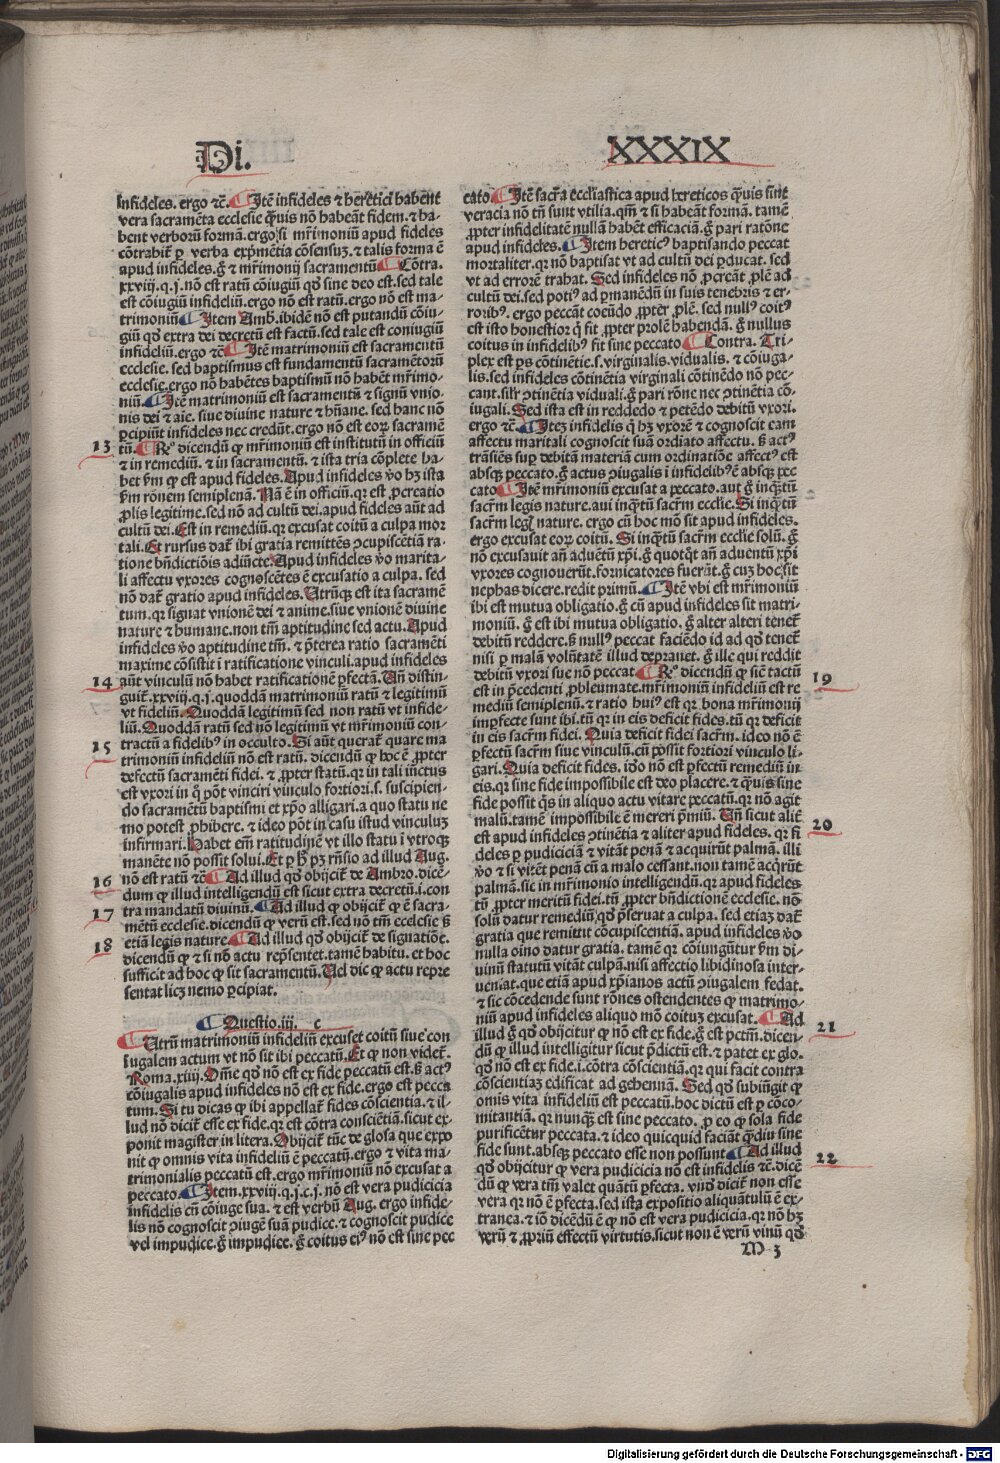 Di.
XXXIX
infideles. ergo ⁊c̄. Itē infideles ⁊ heretici habent
vera sacramēta ecclesie q̄uis nō habeāt fidem. ⁊ ha-
bent verborū formā. ergo si mr̄imoniū apud fideles
cōtrahit̄ ꝑ verba exp̄mētia cōsensuȝ. ⁊ talis forma ē
apud infideles. g̊ ⁊ mr̄imonij sacramentū Cōtra.
xxviij. q. j. nō est ratū cōiugiū qd̄ sine deo est. sed tale
est cōiugiū infideliū. ergo nō est ratū. ergo nō est ma-
trimoniū Item Amb. ibidē nō est putandū cōiu-
giū qd̄ extra dei decretū est factū. sed tale est coniugiū
infideliū. ergo ⁊c̄ Itē matrimoniū est sacramentū
ecclesie. sed baptismus est fundamentū sacramētorū
ecclesie. ergo nō habētes baptismū nō habēt mr̄imo-
niū. Itē matrimoniū est sacramentū ⁊ signū vnio-
nis dei ⁊ aīe. siue diuine nature ⁊ hūane. sed hanc nō
ꝑcipiūt infideles nec credūt. ergo nō est eoꝝ sacramē
13 tū. Rº dicendū ꝙ mr̄imoniū est institutū in officiū
⁊ in remediū. ⁊ in sacramentū. ⁊ ista tria cōplete ha-
bet ẜm ꝙ est apud fideles. Apud infideles ꝟo hȝ ista
ẜm rōnem semiplenā. Nā ē in officiū. qꝛ est ꝓcreatio
ꝓlis legitime. sed nō ad cultū dei. apud fideles aūt ad
cultū dei. Est in remediū. qꝛ excusat coitū a culpa mor
tali. Et rursus dat̄ ibi gratia remittēs ꝯcupiscētiā ra-
tione bn̄dictiōis adiūcte. Apud infideles ꝟo marita-
li affectu vxores cognoscētes ē excusatio a culpa. sed
nō dat̄ gratio apud infideles. Utrūqȝ est ita sacramē
tum. qꝛ signat vnionē dei ⁊ anime. siue vnionē diuine
nature ⁊ humane. non tm̄ aptitudine sed actu. Apud
infideles ꝟo aptitudine tm̄. ⁊ ꝓterea ratio sacramēti
maxime cōsistit ī ratificatione vinculi. apud infideles
14 aūt vinculū nō habet ratificationē ꝑfectā. Un̄ distin-
guit̄. xxviij. q. j. quoddā matrimoniū ratū ⁊ legitimū
vt fideliū. Quoddā legitimū sed non ratū vt infide-
liū. Quoddā ratū sed nō legitimū vt mr̄imoniū con-
15 tractū a fidelibꝰ in occulto. Si aūt querat̄ quare ma
trimoniū infideliū nō est ratū. dicendū ꝙ hoc ē ꝓpter
defectū sacramēti fidei. ⁊ ꝓpter statū. qꝛ in tali iūctus
est vxori in q̊ pōt vinciri vinculo fortiori. s. suscipien-
do sacramētū baptismi ⁊ xp̄o alligari. a quo statu ne
mo potest ꝓhibere. ⁊ ideo pōt in casu istud vinculuȝ
infirmari. Habet em̄ ratitudinē vt illo statu ī vtroqȝ
manēte nō possit solui. Et ꝑ h̄ pȝ rn̄sio ad illud Aug.
16 nō est ratū ⁊c̄ Ad illud qd̄ obijcit̄ de Ambro. dicē-
dum ꝙ illud intelligendū est sicut extra decretū. i. con
17 tra mandatū diuinū. Ad illud ꝙ obijcit̄ ꝙ ē sacra-
mētū ecclesie. dicendū ꝙ verū est. sed nō tm̄ ecclesie ß
18 etiā legis nature. Ad illud qd̄ obijcit̄ de signatiōe.
dicendū ꝙ ⁊ si nō actu rep̄sentet. tamē habitu. et hoc
sufficit ad hoc ꝙ sit sacramentū. Uel dic ꝙ actu repre
sentat licȝ nemo ꝑcipiat.
Questio. iij. c
Utrū matrimoniū infideliū excuset coitū siue con
iugalem actum vt nō sit ibi peccatū. Et ꝙ non videt̄.
Roma. xiiij. Om̄e qd̄ nō est ex fide peccatū est. ß actꝰ
cōiugalis apud infideles nō est ex fide. ergo est pecca
tum. Si tu dicas ꝙ ibi appellat̄ fides cōscientia. ⁊ il-
lud nō dicit̄ esse ex fide. qꝛ est cōtra consciētiā. sicut ex-
ponit magister in litera. Obijcit̄ tūc de glosa que expo
nit ꝙ omnis vita infideliū ē peccatū. ergo ⁊ vita ma-
trimonialis peccatū est. ergo mr̄imoniū nō excusat a
peccato. Item. xxviij. q. j. c. j. nō est vera pudicicia
infidelis cū cōiuge sua. ⁊ est verbū Aug. ergo infide-
lis nō cognoscit ꝯiugē suā pudice. ⁊ cognoscit pudice
vel impudice. g̊ impudice. g̊ coitus eiꝰ nō est sine pec
cato Itē sacr̄a eccl̄iastica apud hereticos q̄uis sint
veracia nō tn̄ sunt vtilia. qm̄ ⁊ si habeāt formā. tamē
ꝓpter infidelitatē nullā habēt efficaciā. g̊ pari ratōne
apud infideles. Item hereticꝰ baptisando peccat
mortaliter. qꝛ nō baptisat vt ad cultū dei ꝑducat. sed
vt ad errorē trahat. Sed infideles nō ꝓcreāt ꝓlē ad
cultū dei. sed potiꝰ ad ꝑmanēdū in suis tenebris ⁊ er-
roribꝰ. ergo peccāt coeūdo ꝓpter ꝓlē. sed nullꝰ coitꝰ
est isto honestior q̄ sit ꝓpter prolē habendā. g̊ nullus
coitus in infidelibꝰ fit sine peccato Contra. Tri-
plex est ꝑs cōtinētie. s. virginalis. vidualis. ⁊ cōiuga-
lis. sed infideles cōtinētia virginali cōtinēdo nō pec-
cant. sil̄r ꝯtinētia viduali. g̊ pari rōne nec ꝯtinētia cō-
iugali. Sed ista est in reddēdo ⁊ petēdo debitū vxori.
ergo ⁊c̄. Iteȝ infidelis q̇ hȝ vxorē ⁊ cognoscit eam
affectu maritali cognoscit suā ordiato affectu. ß actꝰ
trāsiēs suꝑ debitā materiā cum ordinatiōe affectꝰ est
absqȝ peccato. g̊ actus ꝯiugalis ī infidelibꝰē absqȝ pec
cato Itē mr̄imoniū excusat a peccato. aut g̊ inq̄tū
sacr̄m legis nature. aut inq̄tū sacr̄m eccl̄ie. Si inq̄tū
sacr̄m legꝭ nature. ergo cū hoc mō sit apud infideles.
ergo excusat eoꝝ coitū. Si inq̄tū sacr̄m eccl̄ie solū. g̊
nō excusauit an̄ aduētū xp̄i. g̊ quotq̄t an̄ aduentū xp̄i
vxores cognouerūt. fornicatores fuerāt. g̊ cuȝ hoc sit
nephas dicere. redit primū. Itē vbi est mr̄imoniū
ibi est mutua obligatio. g̊ cū apud infideles sit matri-
moniū. g̊ est ibi mutua obligatio. g̊ alter alteri tenet̄
debitū reddere. ß nullꝰ peccat faciēdo id ad qd̄ tenet̄
nisi ꝑ malā volūtatē illud deprauet. g̊ ille qui reddit
debitū vxori sue nō peccat Rº dicendū ꝙ sic̄ tactū 19
est in p̄cedenti ꝓbleumate. mr̄imoniū infideliū est re
mediū semiplenū. ⁊ ratio huiꝰ est qꝛ bona mr̄imonij
impfecte sunt ibi. tū qꝛ in eis deficit fides. tū qꝛ deficit
in eis sacr̄m fidei. Quia deficit fidei sacr̄m. ideo nō ē
ꝑfectū sacr̄m siue vinculū. cū possit fortiori vinculo li-
gari. Quia deficit fides. iō nō est ꝑfectū remediū in
eis. qꝛ sine fide impossibile est deo placere. ⁊ q̄uis sine
fide possit q̇s in aliquo actu vitare peccatū. qꝛ nō agit
malū. tamē impossibile ē mereri p̄miū. Un̄ sicut alit̄ 20
est apud infideles ꝯtinētia ⁊ aliter apud fideles. qꝛ fi
deles ꝑ pudiciciā ⁊ vitāt penā ⁊ acquirūt palmā. illi
ꝟo ⁊ si vitēt penā cū a malo cessant. non tamē acq̇rūt
palmā. sic in mr̄imonio intelligendū. qꝛ apud fideles
tū ꝓpter meritū fidei. tū ꝓpter bn̄dictionē ecclesie. nō
solū datur remediū. qd̄ p̄seruat a culpa. sed etiaȝ dat̄
gratia que remittit concupiscentiā. apud infideles ꝟo
nulla oīno datur gratia. tamē qꝛ cōiungūtur ẜm di-
uinū statutū vitāt culpā. nisi affectio libidinosa inter-
ueniat. que etiā apud xp̄ianos actū ꝯiugalem fedat.
⁊ sic cōcedende sunt rōnes ostendentes ꝙ matrimo-
niū apud infideles aliquo mō coituȝ excusat. Ad 21
illud g̊ qd̄ obijcitur ꝙ nō est ex fide. g̊ est pctm̄. dicen-
dū ꝙ illud intelligitur sicut p̄dictū est. ⁊ patet ex glo.
qd̄ nō est ex fide. i. cōtra cōscientiā. qꝛ qui facit contra
cōscientiaȝ edificat ad gehennā. Sed qd̄ subiūgit ꝙ
omis vita infideliū est peccatū. hoc dictū est ꝑ cōco-
mitantiā. qꝛ nunqȝ est sine peccato. ꝓ eo ꝙ sola fide
purificētur peccata. ⁊ ideo quicquid faciāt q̄diu sine
fide sunt. absqȝ peccato esse non possunt Ad illud 22
qd̄ obijcitur ꝙ vera pudicicia nō est infidelis ⁊c̄. dicē
dū ꝙ vera tm̄ valet quātū ꝑfecta. vnd̄ dicit̄ non esse
vera qꝛ nō ē ꝑfecta. sed ista expositio aliquātulū ē ex-
tranea. ⁊ iō dicēdū ē ꝙ nō est vera pudicicia. qꝛ nō hȝ
verū ⁊ ꝓpriū effectū virtutis. sicut non ē verū vinū qd̄
M 3
Digitalisierung gefördert durch die Deutsche Forschungsgemeinschaft - DFG